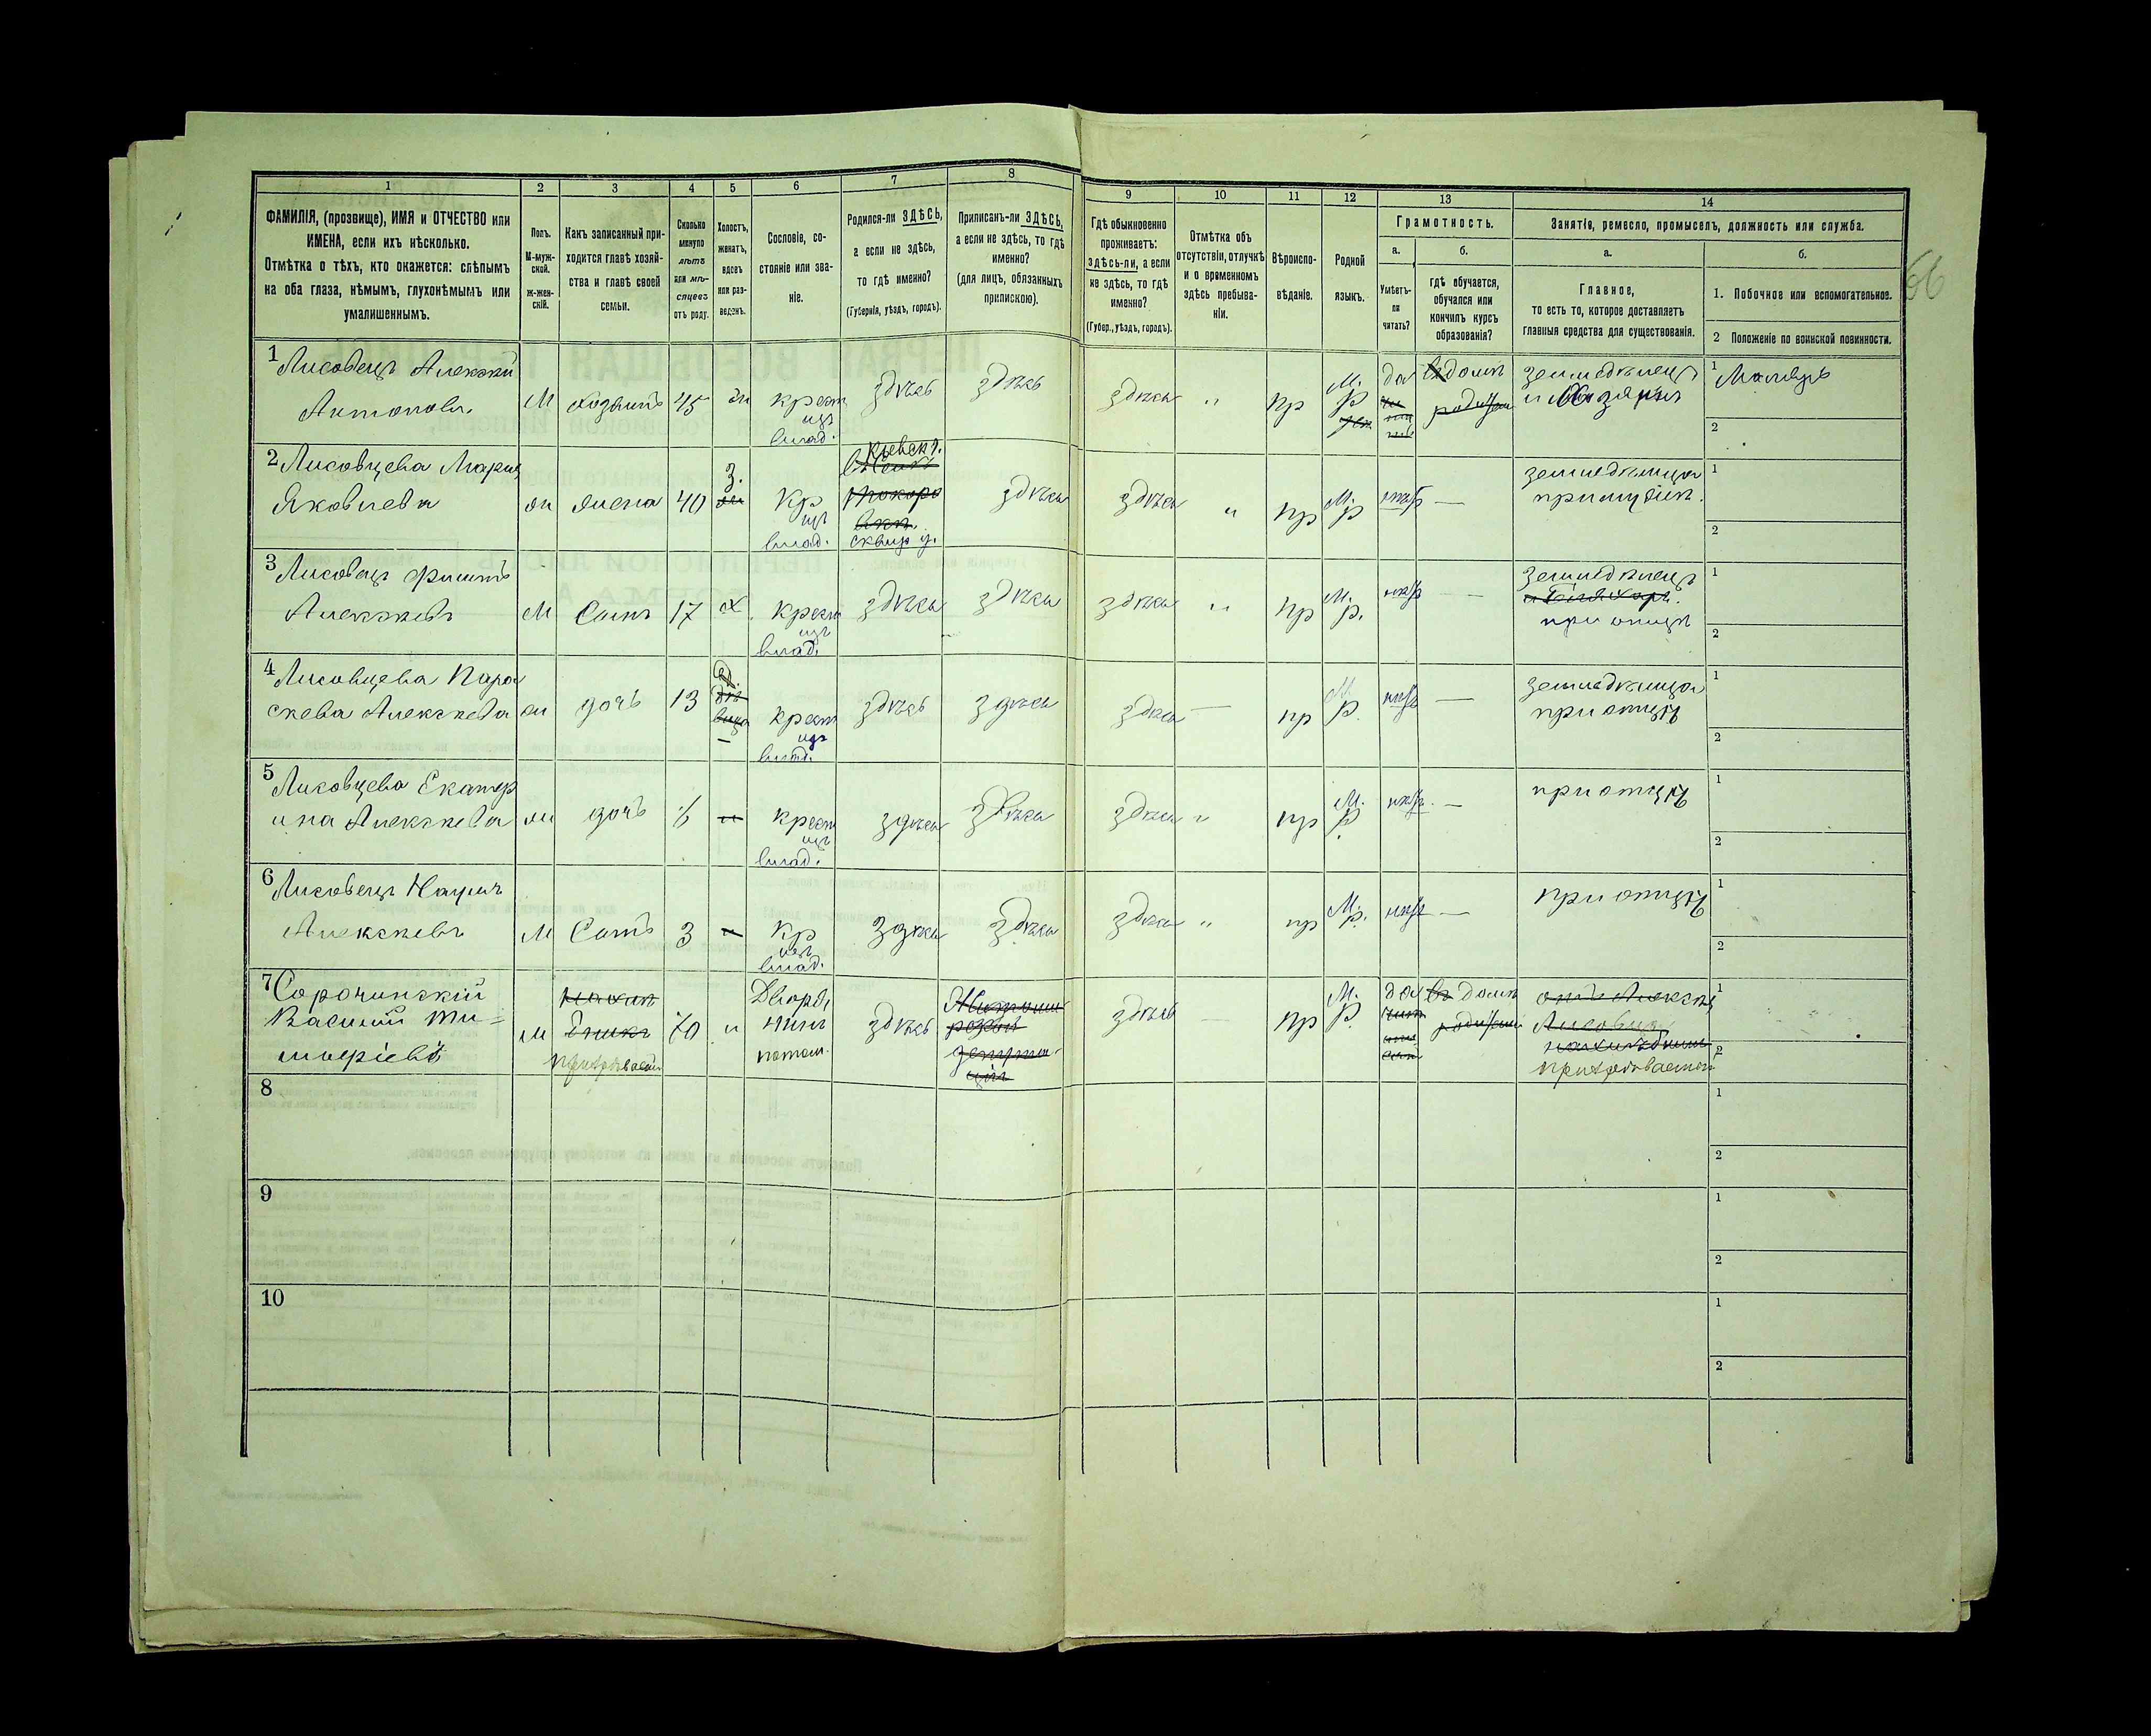 1 2 3 4 5 6 7 8 9 10 11 12 13 14
ФАМИЛІЯ, (прозвище), ИМЯ и ОТЧЕСТВО или
ИМЕНА, если ихъ нѣсколько.
Отмѣтка о тѣхъ, кто окажется: слѣпымъ
на оба глаза, нѣмымъ, глухонѣмымъ или
умалишеннымъ.
Полъ.
М-муж-
ской.
ж-жен-
скій.
Какъ записанный при-
ходится главѣ хозяй-
ства и главѣ своей
семьи.
Сколько
минуло
лѣтъ
или мѣ-
сяцевъ
отъ роду.
Холостъ,
женатъ,
вдовъ
или раз-
веденъ.
Сословіе, со-
стояніе или зва-
ніе.
Родился-ли ЗДѢСЬ,
а если не здѣсь,
то гдѣ именно?
(Губернія, уѣздъ, городъ).
Приписанъ-ли ЗДѢСЬ,
а если не здѣсь, то гдѣ
именно?
(для лицъ, обязанныхъ
припискою).
Гдѣ обыкновенно
проживаетъ:
здѣсь-ли, а если
не здѣсь, то гдѣ
именно?
(Губер., уѣздъ, городъ).
Отмѣтка объ
отсутствіи, отлучкѣ
и о временномъ
здѣсь пребыва-
ніи.
Вѣроиспо-
вѣданіе.
Родной
языкъ.
Грамотность.
а.
Умѣетъ-
ли
читать?
б.
гдѣ обучается,
обучался или
кончилъ курсъ
образованія?
Занятіе, ремесло, промыселъ, должность или служба.
а.
Главное,
то есть то, которое доставляетъ
главныя средства для существованія.
б.
1. Побочное или вспомогательное.
2 Положеніе по воинской повинности.
66
1 Лисовецъ Алексѣй
Антоновъ.
М хозяинъ 45 ж крест
изъ
влад.
здѣсь здѣсь здѣсь " пр М.
Р
да въ домѣ
родител
земледѣлецъ
1 Маляръ
2
2 Лисовцева Марія
Яковлева
ж жена 40 З. Кр
изъ
влад.
Кіевск г.
сквир у.
здѣсь здѣсь " пр М.
Р
нѣтъ — земледѣлица
при мужѣ.
1
2
3 Лисовецъ Филипъ
Алексѣевъ
М Сынъ 17 х. крест
изъ
влад.
здѣсь здѣсь здѣсь " пр М.
Р.
нѣтъ — земледѣлецъ
при отцѣ
1
2
4 Лисовцева Пара
скева Алексѣева
ж дочь 13 крест
изъ
влад.
здѣсь здѣсь здѣсь — пр М.
Р.
нѣтъ — земледѣлица
при отцѣ
1
2
5 Лисовцева Екатер
ина Алексѣева
ж дочь 6 крест
изъ
влад.
здѣсь здѣсь здѣсь " пр М.
Р.
нѣтъ. — при отцѣ
1
2
6 Лисовецъ Наумъ
Алексѣевъ
М Сынъ 3 — кр
изъ
влад.
здѣсь здѣсь здѣсь " пр М.
Р.
нѣтъ — при отцѣ
1
2
7 Сорочинскій
Василій Ти-
моѳіевъ
М 70 Дворя
нинъ
потом.
здѣсь здѣсь — пр М.
Р.
да въ домѣ
родител
1
2
8 1
2
9 1
2
10 1
2